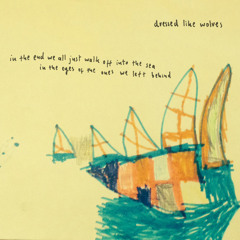 dressed like wolves
in the end we all just walk off into the sea
in the eyes of the ones we left behind